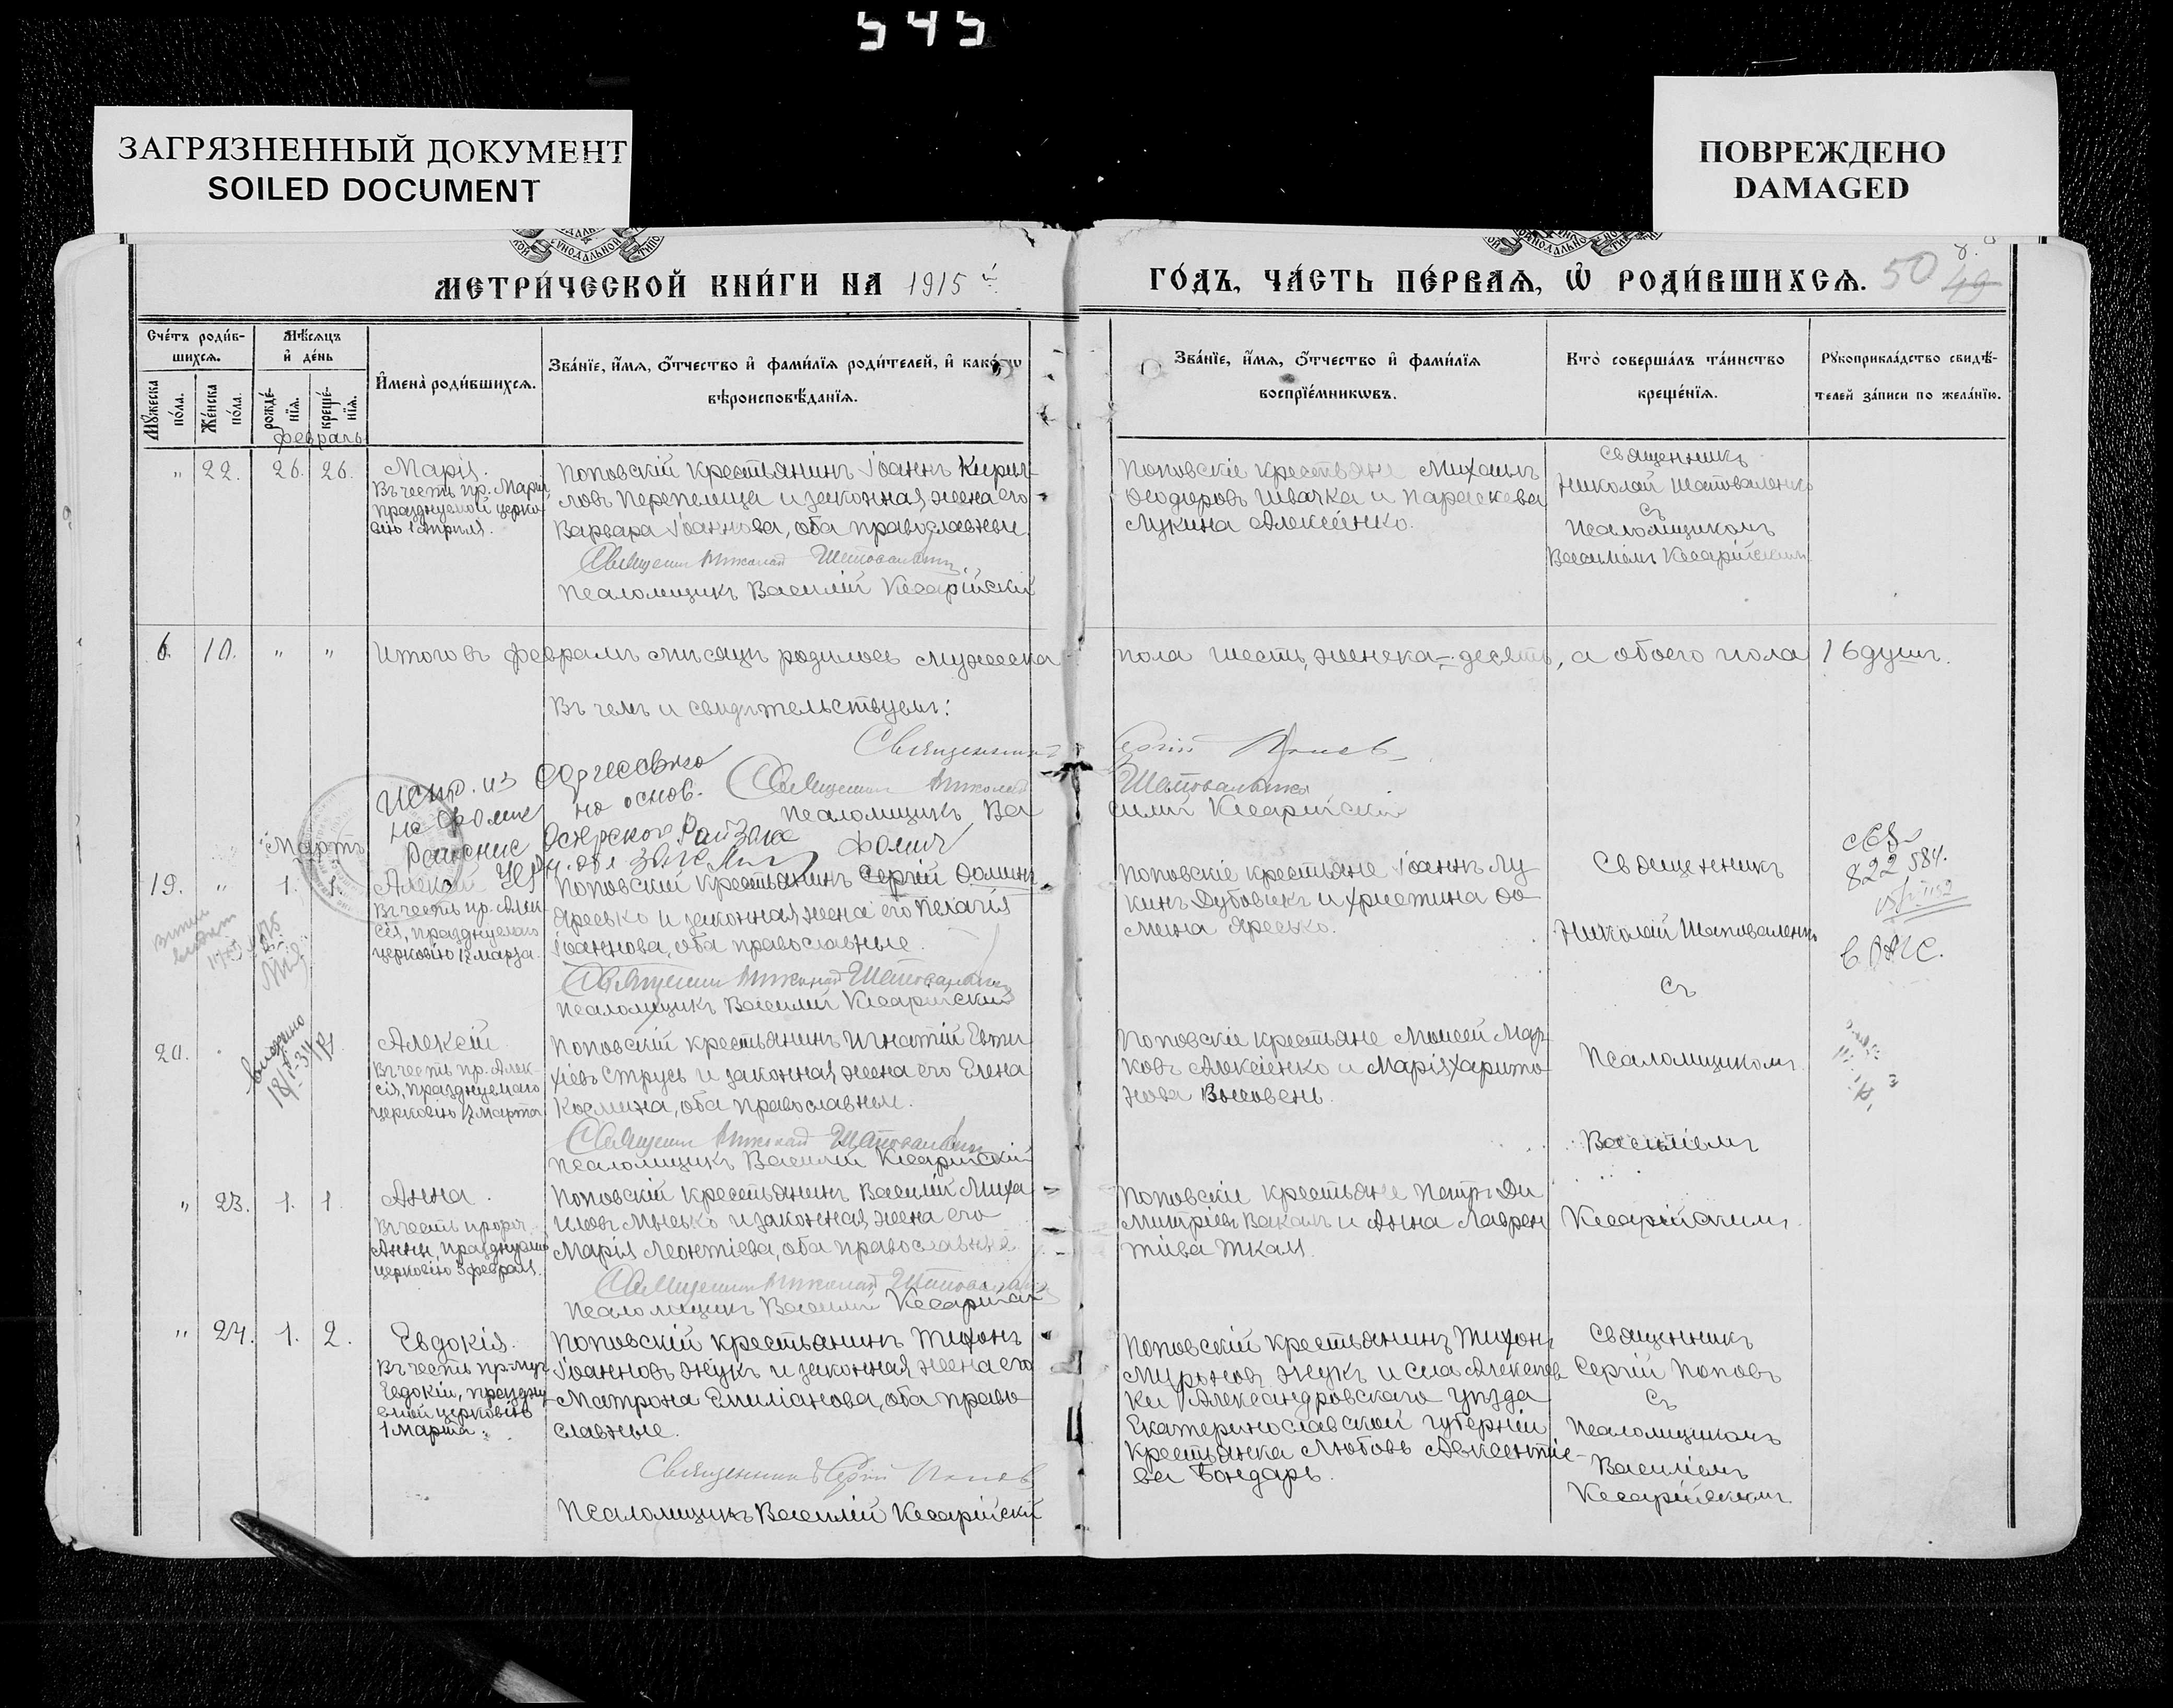 545
ЗАГРЯЗНЕННЫЙ ДОКУМЕНТ
SOILED DOCUMENT
ПОВРЕЖДЕНО
DAMAGED
МЕТРИ́ЧЕСКОЙ КНИ́ГИ НА 1915 й
ГО́ДЪ, ЧА́СТЬ ПЕ́РВАЯ, Ѡ҆ РОДИ́ВШИХСЯ. 50 49
Сче́тъ роди́в-
шихся.
Мѣ́сяцъ
и҆ де́нь
Мꙋ́жеска по́ла.
Же́нска по́ла.
рожде́-нїѧ.
креще́-нїѧ.
И҆мена̀ роди́вшихсѧ.
Зва́нїе, и҆́мѧ, ѻ҆́тчество и҆ фами́лїѧ роди́телей, и҆ како́гѡ
вѣроисповѣ́данїѧ.
Зва́нїе, и҆́мѧ, ѻ҆́тчество и҆ фами́лїѧ
воспрїе́мникѡвъ.
Кто̀ соверша́лъ та́инство
креще́нїѧ.
Рꙋкоприкла́дство свидѣ́-
телей за́писи по жела́нїю.
февраль
" 22. 26. 26.
Марія.
Въ честь пр. Маріи,
празднуемой церко-
вію 1 апрѣля.
Поповскій крестьянинъ Іоаннъ Кирил-
ловъ Перепелица и законная жена его
Варвара Іоаннова, оба православные.
Священникъ Николай Шаповаленко
Псаломщикъ Василій Кесарійскій
Поповскіе крестьяне Михаилъ
Ѳеодоровъ Швачка и Параскева
Лукина Алексіенко.
Священникъ
Николай Шаповаленко
съ
Псаломщикомъ
Василіемъ Кесарійскимъ
6. 10. " " Итого въ февралѣ мѣсяцѣ родилось мужеска пола шесть, женска – десять, а обоего пола 16 душъ.
Въ чемъ и свидѣтельствуемъ:
Священникъ Сергій Поповъ
Священникъ Николай Шаповаленко
Псаломщикъ Василій Кесарійскій
Испр. из Сергеевича
на Фомич на основ.
Фомич
Мартъ
19. " 1. 1.
Алексій
Въ честь пр. Алек-
сія, празднуемаго
церковію 17 марта.
Поповскій крестьянинъ Сергій Ѳоминъ
Яресько и законная жена его Пелагія
Іоаннова, оба православные.
Священникъ Николай Шаповаленко
Псаломщикъ Василій Кесарійскій
Поповскіе крестьяне Іоаннъ Лу
кинъ Дубовикъ и Христина Ѳо
мина Яресько.
Священникъ
Николай Шаповаленко
съ
822584.
20.
Алексій
Въ честь пр. Алек-
сія, празднуемаго
церковію 17 марта
Поповскій крестьянинъ Игнатій Евти
хіевъ Струсь и законная жена его Елена
Космина, оба православные.
Священникъ Николай Шаповаленко
Псаломщикъ Василій Кесарійскій
Поповскіе крестьяне Моисей Мар-
ковъ Алексіенко и Марія Харито
нова
Псаломщикомъ
Василіемъ
" 23. 1. 1
Анна.
Въ честь пророч.
Анны, празднуемой
церковію 3 февраля.
Поповскій крестьянинъ Василій Миха
иловъ и законная жена его
Марія Леонтіева, оба православные.
Священникъ Николай Шаповаленко
Псаломщикъ Василій Кесарійскій
Поповскіе крестьяне Петръ Ди
митріевъ Вакалъ и Анна Лаврен
тіева Ткачъ.
Кесарійскимъ.
" 24. 1. 2.
Евдокія.
Въ честь пр-муч.
Евдокіи, праздну
емой церковію
1 Марта.
Поповскій крестьянинъ Тихонъ
Іоанновъ Жукъ и законная жена его
Матрона Емиліанова, оба право
славные.
Священникъ Сергій Поповъ
Псаломщикъ Василій Кесарійскій
Поповскій крестьянинъ Тихонъ
Мироновъ Жукъ и села Алексѣев
ки Александровскаго уѣзда
Екатеринославской губерніи
крестьянка Любовь Авксентіе-
ва Бондарь.
Священникъ
Сергій Поповъ
съ
Псаломщикомъ
Василіемъ
Кесарійскимъ.